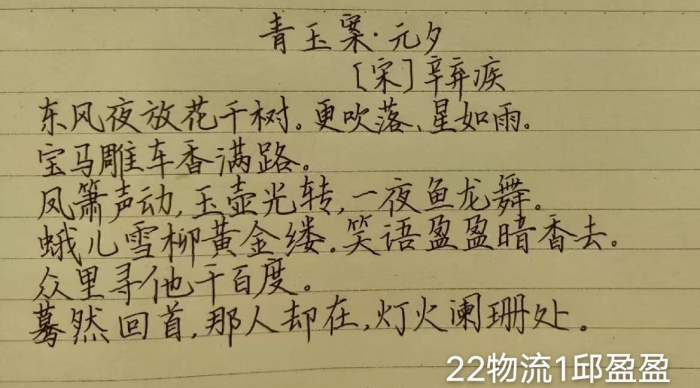 青玉案·元夕
[宋]辛弃疾
东风夜放花千树。更吹落、星如雨。
宝马雕车香满路。
凤箫声动,玉壶光转,一夜鱼龙舞。
蛾儿雪柳黄金缕。笑语盈盈暗香去。
众里寻他千百度。
蓦然回首,那人却在,灯火阑珊处。
22物流1邱盈盈